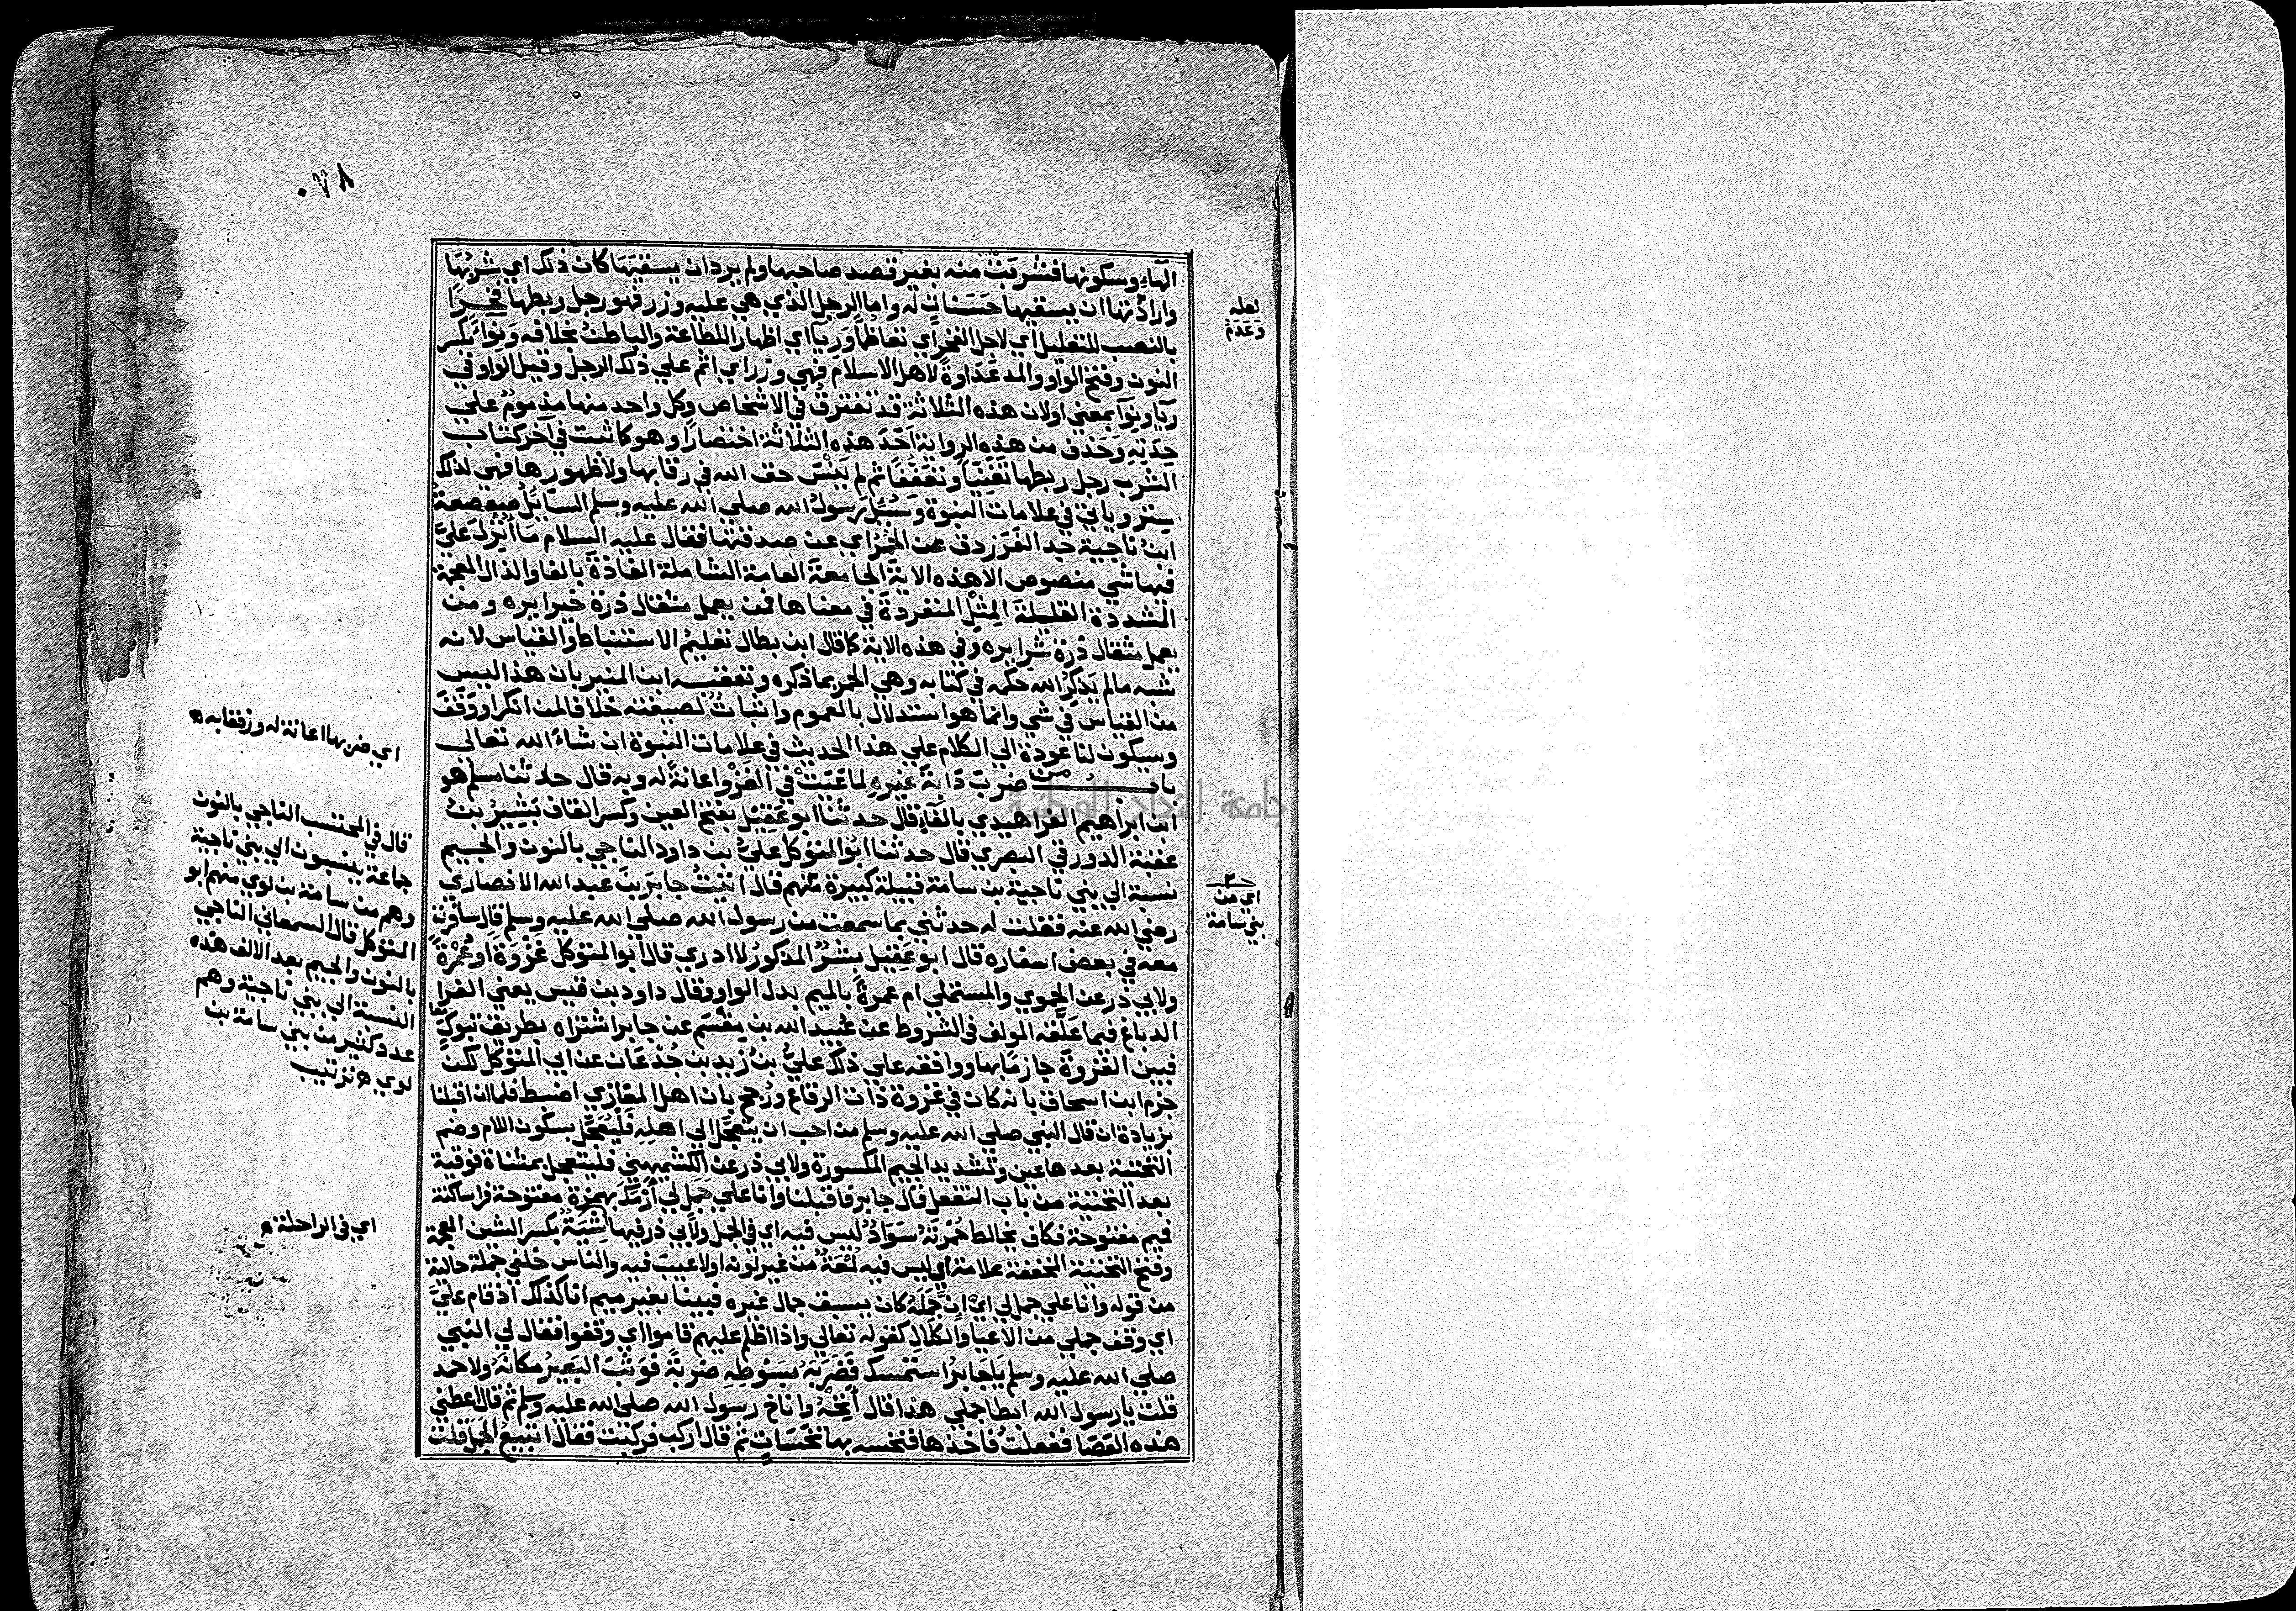 ٠٧٨
الهاء وسكونها فشربت منه بغير قصد صاحبها ولم يرد ان يسقيها كان ذلك اي شربها
وارادتها ان يسقيها حسنات له واما الرجل الذي هي عليه وزر فهو رجل ربطها فخرا
بالنصب للتعليل اي لاجل الفخر اي تعاظما ورياء اي اظهارا للطاعة والباطن بخلافه ونواء بكسر
النون وفتح الواو والمد عداوة لاهل الاسلام فهي وزر اي اثم علي ذلك الرجل وقيل الواو في
رياء ونواء بمعني او لان هذه الثلاثة قد تفترق في الاشخاص وكل واحد منها مذموم علي
حدته وحذف من هذه الرواية احد هذه الثلاثة اختصارا وهو كما ثبت في آخر كتاب
الشرب رجل ربطها تغنيا وتعففا ثم لم ينس حق الله في رقابها ولا ظهورها فهي لذلك
ستر وياتي في علامات النبوة وسئل رسول الله صلي الله عليه وسلم السائل صعصعة
ابن ناجية جد الفرزدق عن الحمر اي عن صدقتها فقال عليه السلام ما انزل علي
فيها شي منصوص الا هذه الاية الجامعة العامة الشاملة الفاذة بالفا والذال المعجمة
المشددة القليلة المثل المنفردة في معناها فمن يعمل مثقال ذرة خيرا يره ومن
يعمل مثقال ذرة شرا يره وفي هذه الاية كما قال ابن بطال تعليم الاستنباط والقياس لانه
شبه مالم يذكر الله حكمه في كتابه وهي الحمر بما ذكره وتعقبه ابن المنير بان هذا ليس
من القياس في شي وانما هو استدلال بالعموم واثبات لصيغته خلافا لمن انكر او وقف
وسيكون لنا عودة الي الكلام علي هذا الحديث في علامات النبوة ان شاء الله تعالى
باب من ضرب دابة غيره لما عيت في الغزو اعانة له وبه قال حدثنا مسلم هو
ابن ابراهيم الفراهيدي بالفاء قال حدثنا ابو عقيل بفتح العين وكسر القاف بشير بن
عقبة الدورقي البصري قال حدثنا ابو المتوكل علي بن داود الناجي بالنون والجيم
نسبة الي بني ناجية بن سامة قبيلة كبيرة منهم قال اتيت جابر بن عبد الله الانصاري
رضي الله عنه فقلت له حدثني بما سمعت من رسول الله صلي الله عليه وسلم قال سافرت
معه في بعض اسفاره قال ابو عقيل بشير المذكور لا ادري قال ابو المتوكل غزوة او عمرة
ولابي ذر عن الحموي والمستملي ام عمرة بالميم بدل الواو وقال داود بن قيس يعني الفرا
الدباغ فيما علقه المولف في الشروط عن عبيد الله بن مقسم عن جابر اشتراه بطريق تبوك
فبين الغزوة جازما بها ووافقه علي ذلك علي بن زيد بن جدعان عن ابي المتوكل لكن
جزم ابن اسحاق بانه كان في غزوة ذات الرقاع ورجح بان اهل المغازي اضبط فلما ان اقبلنا
بزيادة ان قال النبي صلي الله عليه وسلم من احب ان يتعجل الي اهله فليعجل بسكون اللام وضم
التحتية بعدها عين وتشديد الجيم المكسورة ولابي ذر عن الكشميهني فليتعجل بمثناة فوقية
بعد التحتية من باب التفعل قال جابر فاقبلنا وانا علي جمل لي ارمك بهمزة مفتوحة فرا ساكنة
فميم مفتوحة فكاف يخالط حمرته سواد ليس فيه اي في الجمل ولابي ذر فيها شية بكسر الشين المعجمة
وفتح التحتية المخففة علامة اي ليس فيه لمعة من غير لونه او لا عيب فيه والناس خلفي جملة حالية
من قوله وانا علي جمل لي اي ان جمله كان يسبق جمال غيره فبينا بغير ميم انا كذلك اذ قام علي
اي وقف جملي من الاعيا والكلال كقوله تعالي واذا اظلم عليهم قاموا اي وقفوا فقال لي النبي
صلي الله عليه وسلم يا جابر استمسك فضربه بسوطه ضربة فوثب البعير مكانه ولاحمد
قلت يا رسول الله ابطا جملي هذا قال انخه واناخ رسول الله صلي الله عليه وسلم ثم قال اعطني
هذه العصا ففعلت فاخذها فنخسه بها نخسات ثم قال اركب فركبت فقال اتبيع الجمل قلت
لعله
وعدم
اي من
بني سامة
اي ضربها اعانة له ورفقا به
قال في المحتسب الناجي بالنون
جماعة ينسبون الي بني ناجية
وهم من سامة بن لوي منهم ابو
المتوكل قال السمعاني الناجي
بالنون والجيم بعد الالف هذه
النسبة الي بني ناجية وهم
عدد كثير من بني سامة بن
لوي ه ترتيب
اي في الراحلة
جامعة النجاح الوطنية